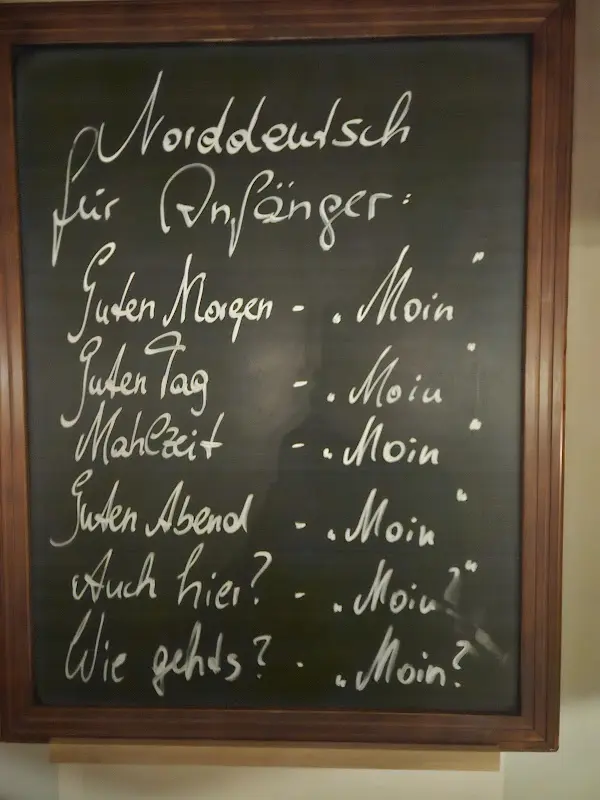 Norddeutsch
für Anfänger:
Guten Morgen - „Moin"
Guten Tag - „Moin"
Mahlzeit - „Moin"
Guten Abend - „Moin"
Auch hier? - „Moin?"
Wie gehts? - „Moin?